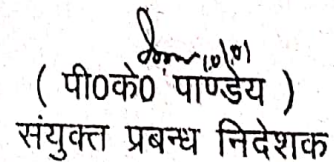 ( पी0के0 पाण्डेय )
संयुक्त प्रबन्ध निदेशक